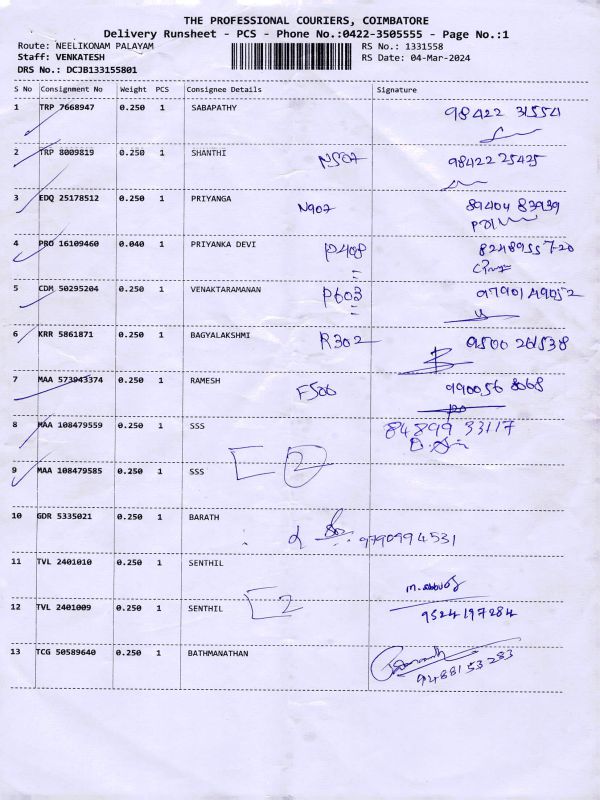 THE PROFESSIONAL COURIERS, COIMBATORE
Delivery Runsheet - PCS - Phone No.:0422-3505555 - Page No.:1
Route: NEELIKONAM PALAYAM RS No.: 1331558
Staff: VENKATESH RS Date: 04-Mar-2024
DRS No.: DCJB133155801
S No Consignment No Weight PCS Consignee Details Signature
1 TRP 7668947 0.250 1 SABAPATHY 98422 31554
2 TRP 8009819 0.250 1 SHANTHI N507 98422 25425
3 EDQ 25178512 0.250 1 PRIYANGA N902 89404 83939
4 PRO 16109460 0.040 1 PRIYANKA DEVI P408 8248955720
5 CDM 50295204 0.250 1 VENAKTARAMANAN P603 9790149052
6 KRR 5861871 0.250 1 BAGYALAKSHMI R302 9500 261538
7 MAA 573943374 0.250 1 RAMESH F506 990056 8068
8 MAA 108479559 0.250 1 SSS 84899 33117
9 MAA 108479585 0.250 1 SSS 2
10 GDR 5335021 0.250 1 BARATH 9790994531
11 TVL 2401010 0.250 1 SENTHIL
12 TVL 2401009 0.250 1 SENTHIL 2 9524197284
13 TCG 50589640 0.250 1 BATHMANATHAN 9488153283